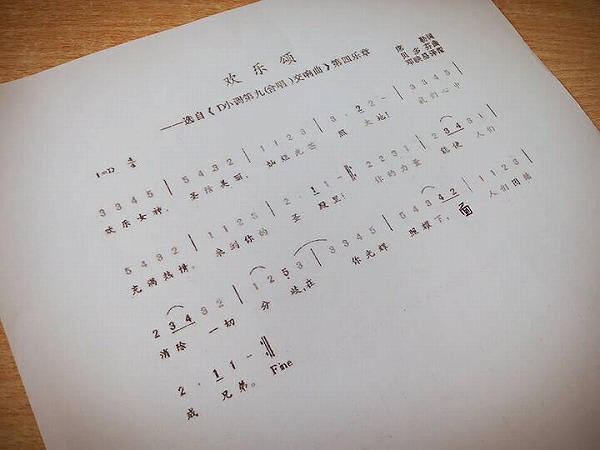 欢 乐 颂
——选自《D小调第九(合唱)交响曲》第四乐章
席 勒词
贝 多 芬曲
邓映易译配
1=D 4/4
3 3 4 5 | 5 4 3 2 | 1 1 2 3 | 3 · 2 2 - | 3 3 4 5 |
欢 乐 女 神, 圣 洁 美 丽, 灿 烂 光 芒 照 大 地! 我 们 心 中
5 4 3 2 | 1 1 2 3 | 2 · 1 1 - :‖ 2 2 3 1 | 2 3 4 3 1 |
充 满 热 情, 来 到 你 的 圣 殿 里! 你 的 力 量 能 使 人 们
2 3 4 3 2 | 1 2 5 3 | 3 3 4 5 | 5 4 3 4 2 | 1 1 2 3 |
消 除 一 切 分 歧,在 你 光 辉 照 耀 下, 面 人 们 团 结
2 · 1 1 - ‖
成 兄 弟。 Fine